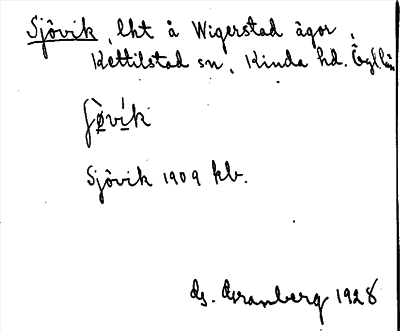 Sjövik, lht å Wigerstad ägor,
Kettilstad sn, Kinda hd. Ögllän
Sjövik 1909 kb.
G. Granberg 1928